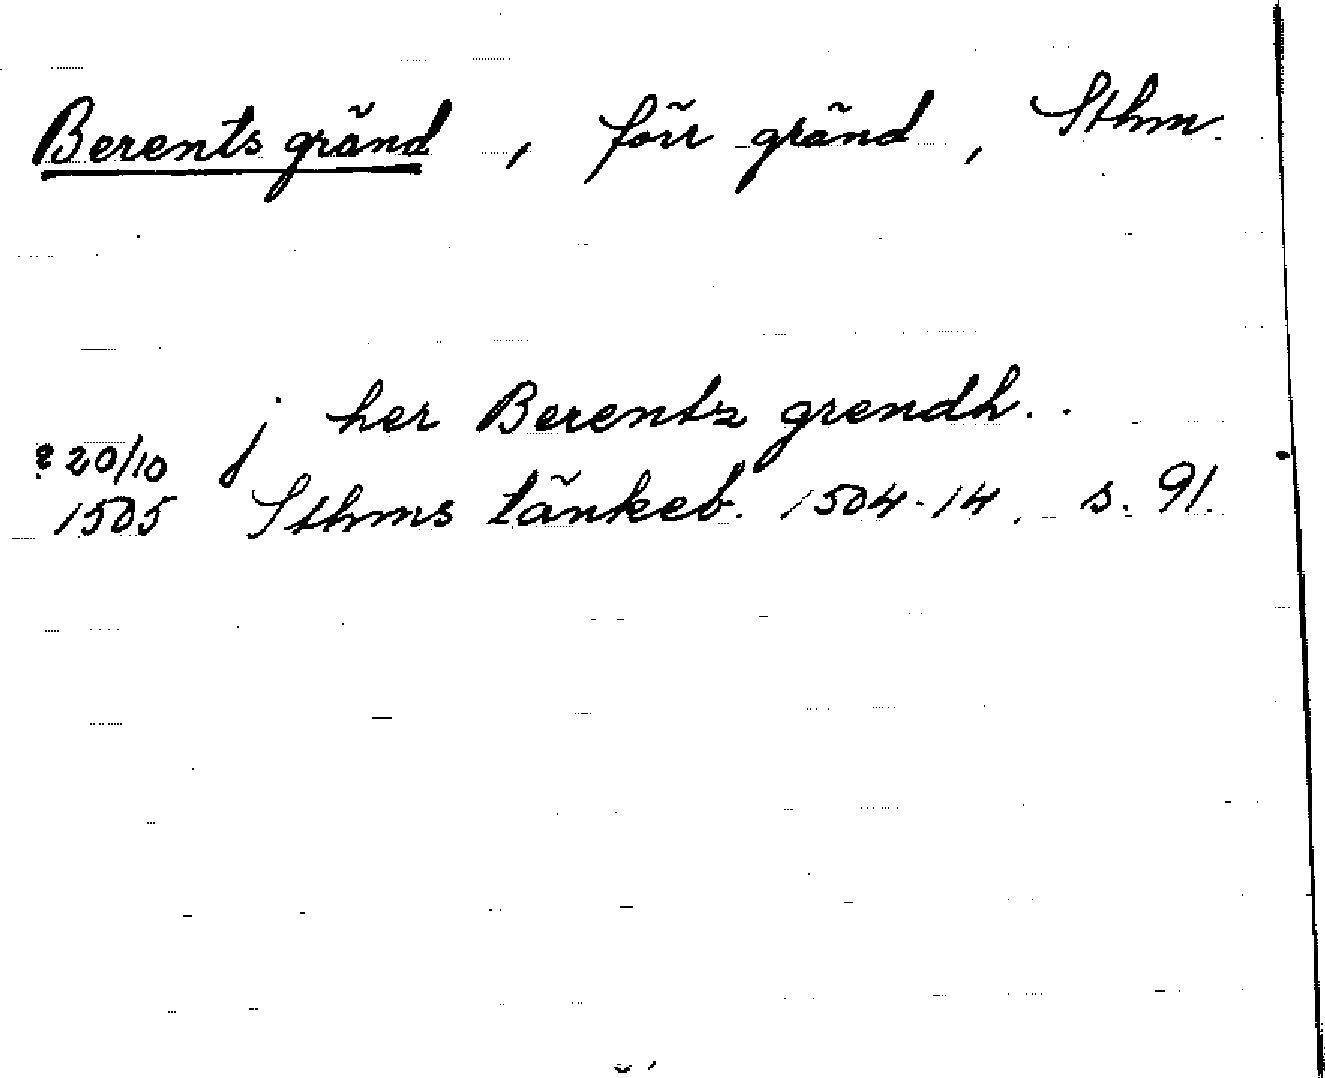 Berents gränd, förr gränd, Sthm.
j her Berentz grendh..
? 20/10
1505 Sthms tänkeb. 1504-14, s. 91.